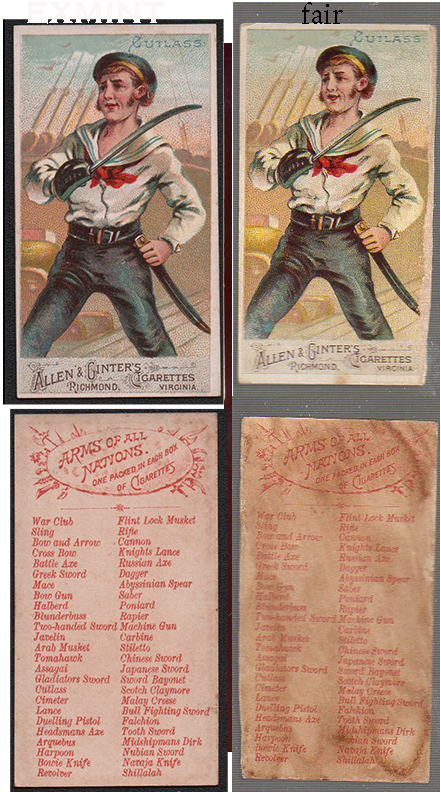 fair
CUTLASS
ALLEN & GINTER'S
CIGARETTES
RICHMOND,
VIRGINIA
CUTLASS
ALLEN & GINTER'S
CIGARETTES
RICHMOND,
VIRGINIA
ARMS OF ALL
NATIONS.
ONE PACKED IN EACH BOX
OF CIGARETTES
War Club Flint Lock Musket
Sling Rifle
Bow and Arrow Cannon
Cross Bow Knights Lance
Battle Axe Russian Axe
Greek Sword Dagger
Mace Abyssinian Spear
Bow Gun Saber
Halberd Poniard
Blunderbuss Rapier
Two-handed Sword Machine Gun
Javelin Carbine
Arab Musket Stiletto
Tomahawk Chinese Sword
Assagai Japanese Sword
Gladiators Sword Sword Bayonet
Cutlass Scotch Claymore
Cimeter Malay Creese
Lance Bull Fighting Sword
Duelling Pistol Falchion
Headsmans Axe Tooth Sword
Arquebus Midshipmans Dirk
Harpoon Nubian Sword
Bowie Knife Navaja Knife
Revolver Shillalah
ARMS OF ALL
NATIONS.
ONE PACKED IN EACH BOX
OF CIGARETTES
War Club Flint Lock Musket
Sling Rifle
Bow and Arrow Cannon
Cross Bow Knights Lance
Battle Axe Russian Axe
Greek Sword Dagger
Mace Abyssinian Spear
Bow Gun Saber
Halberd Poniard
Blunderbuss Rapier
Two-handed Sword Machine Gun
Javelin Carbine
Arab Musket Stiletto
Tomahawk Chinese Sword
Assagai Japanese Sword
Gladiators Sword Sword Bayonet
Cutlass Scotch Claymore
Cimeter Malay Creese
Lance Bull Fighting Sword
Duelling Pistol Falchion
Headsmans Axe Tooth Sword
Arquebus Midshipmans Dirk
Harpoon Nubian Sword
Bowie Knife Navaja Knife
Revolver Shillalah